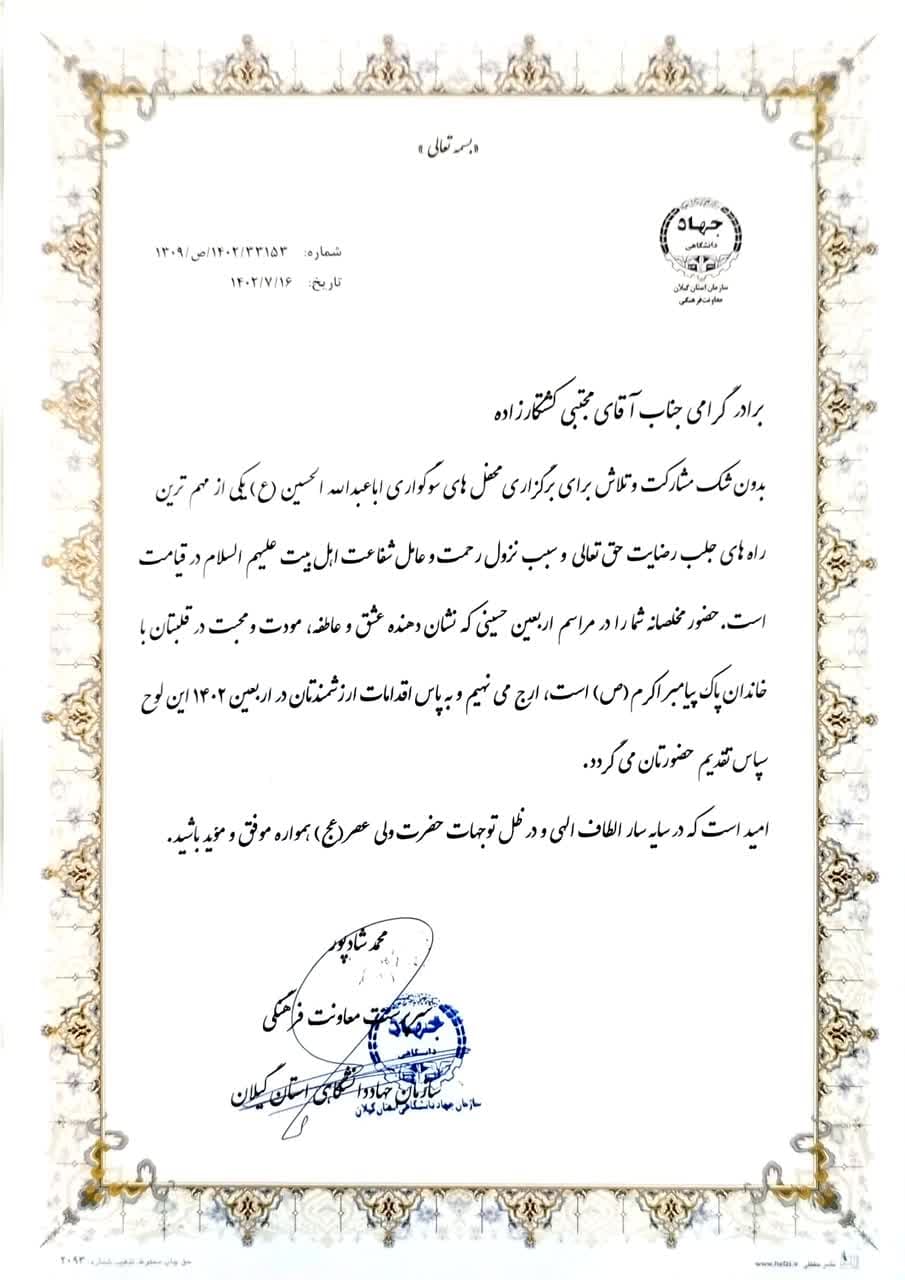 «بسمه تعالی»
جهاد
دانشگاهی
سازمان استان گیلان
معاونت فرهنگی
شماره: ۱۴۰۲/۳۳۱۵۳/ص/۱۳۰۹
تاریخ: ۱۴۰۲/۷/۱۶
برادر گرامی جناب آقای مجتبی کشتکارزاده
بدون شک مشارکت و تلاش برای برگزاری محفل های سوگواری اباعبدالله الحسین (ع) یکی از مهم ترین
راه های جلب رضایت حق تعالی و سبب نزول رحمت و عامل شفاعت اهل بیت علیهم السلام در قیامت
است. حضور مخلصانه شما را در مراسم اربعین حسینی که نشان دهنده عشق و عاطفه، مودت و محبت در قلبتان با
خاندان پاک پیامبر اکرم (ص) است، ارج می نهیم و به پاس اقدامات ارزشمندتان در اربعین ۱۴۰۲ این لوح
سپاس تقدیم حضورتان می گردد.
امید است که در سایه سار الطاف الهی و در ظل توجهات حضرت ولی عصر (عج) همواره موفق و مؤید باشید.
محمد شادپور
سرپرست معاونت فرهنگی
سازمان جهاددانشگاهی استان گیلان
جهاد
دانشگاهی
سازمان جهاد دانشگاهی استان گیلان
حق چاپ محفوظ، تذهیب شماره: ۲۰۹۳